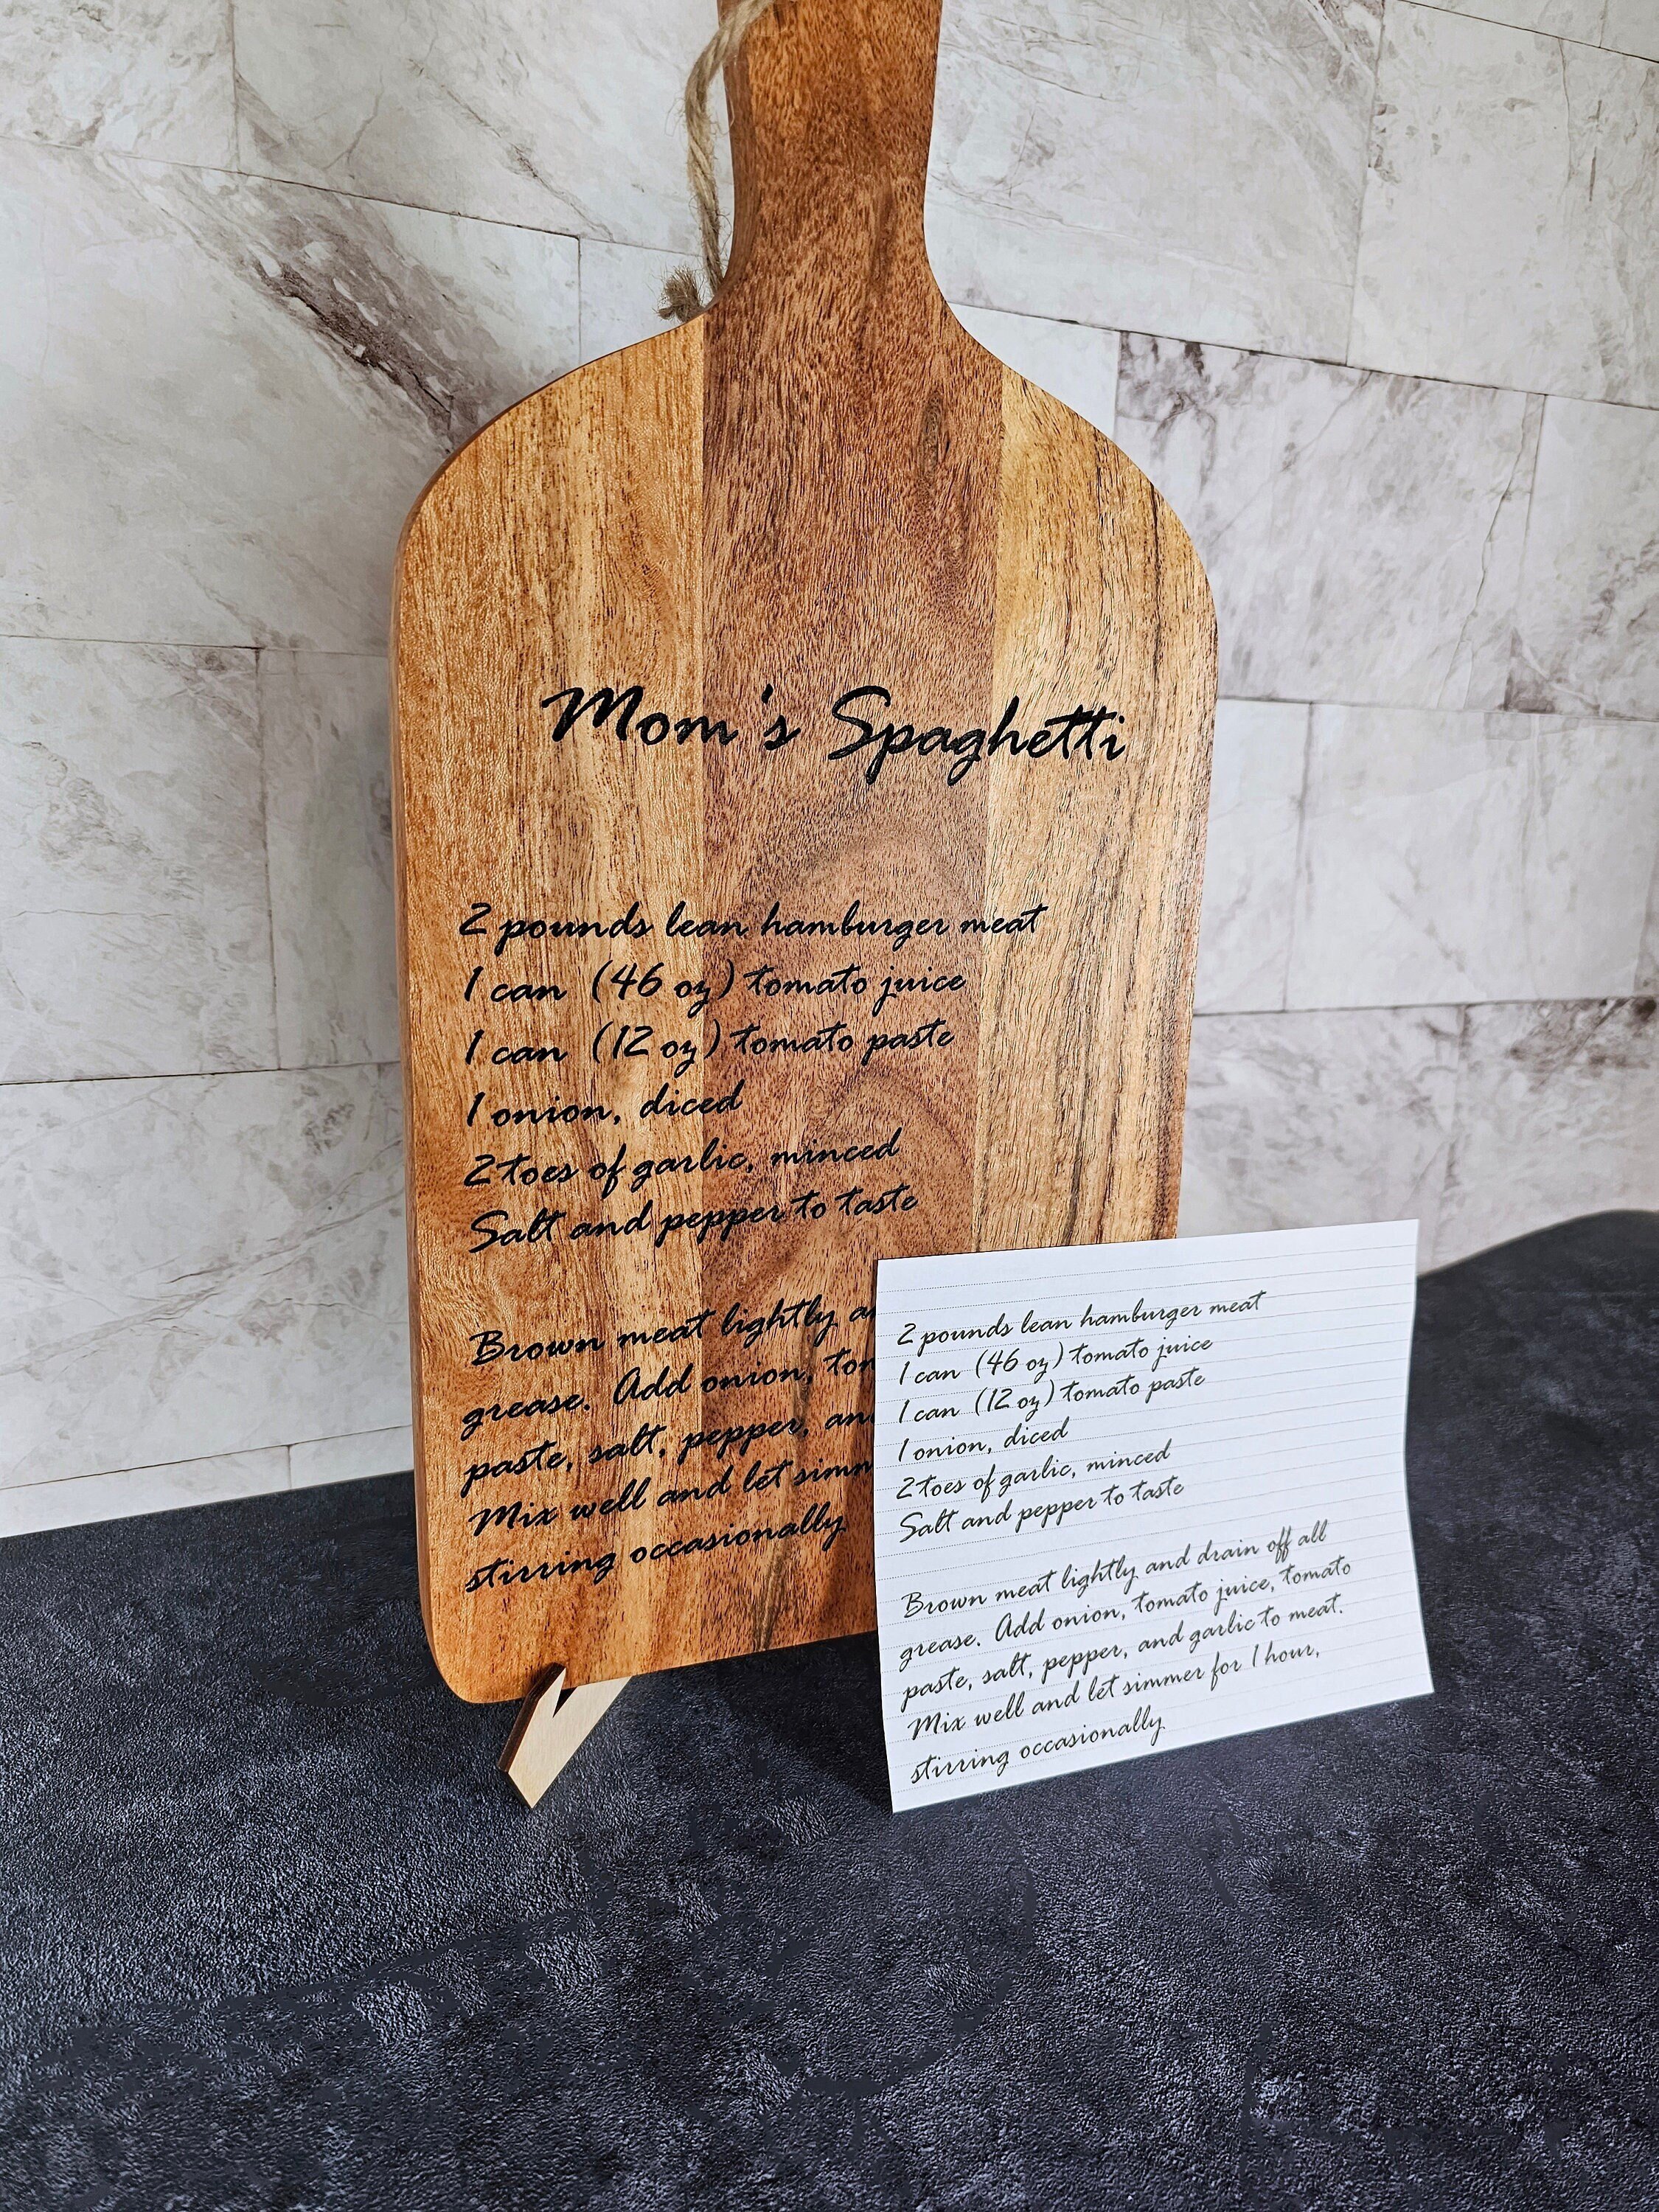 Mom's Spaghetti
2 pounds lean hamburger meat
1 can (46 oz) tomato juice
1 can (12 oz) tomato paste
1 onion, diced
2 toes of garlic, minced
Salt and pepper to taste
Brown meat lightly
grease. Add onion,
paste, salt, pepper,
Mix well and let
stirring occasionally
2 pounds lean hamburger meat
1 can (46 oz) tomato juice
1 can (12 oz) tomato paste
1 onion, diced
2 toes of garlic, minced
Salt and pepper to taste
Brown meat lightly and drain off all
grease. Add onion, tomato juice, tomato
paste, salt, pepper, and garlic to meat.
Mix well and let simmer for 1 hour,
stirring occasionally